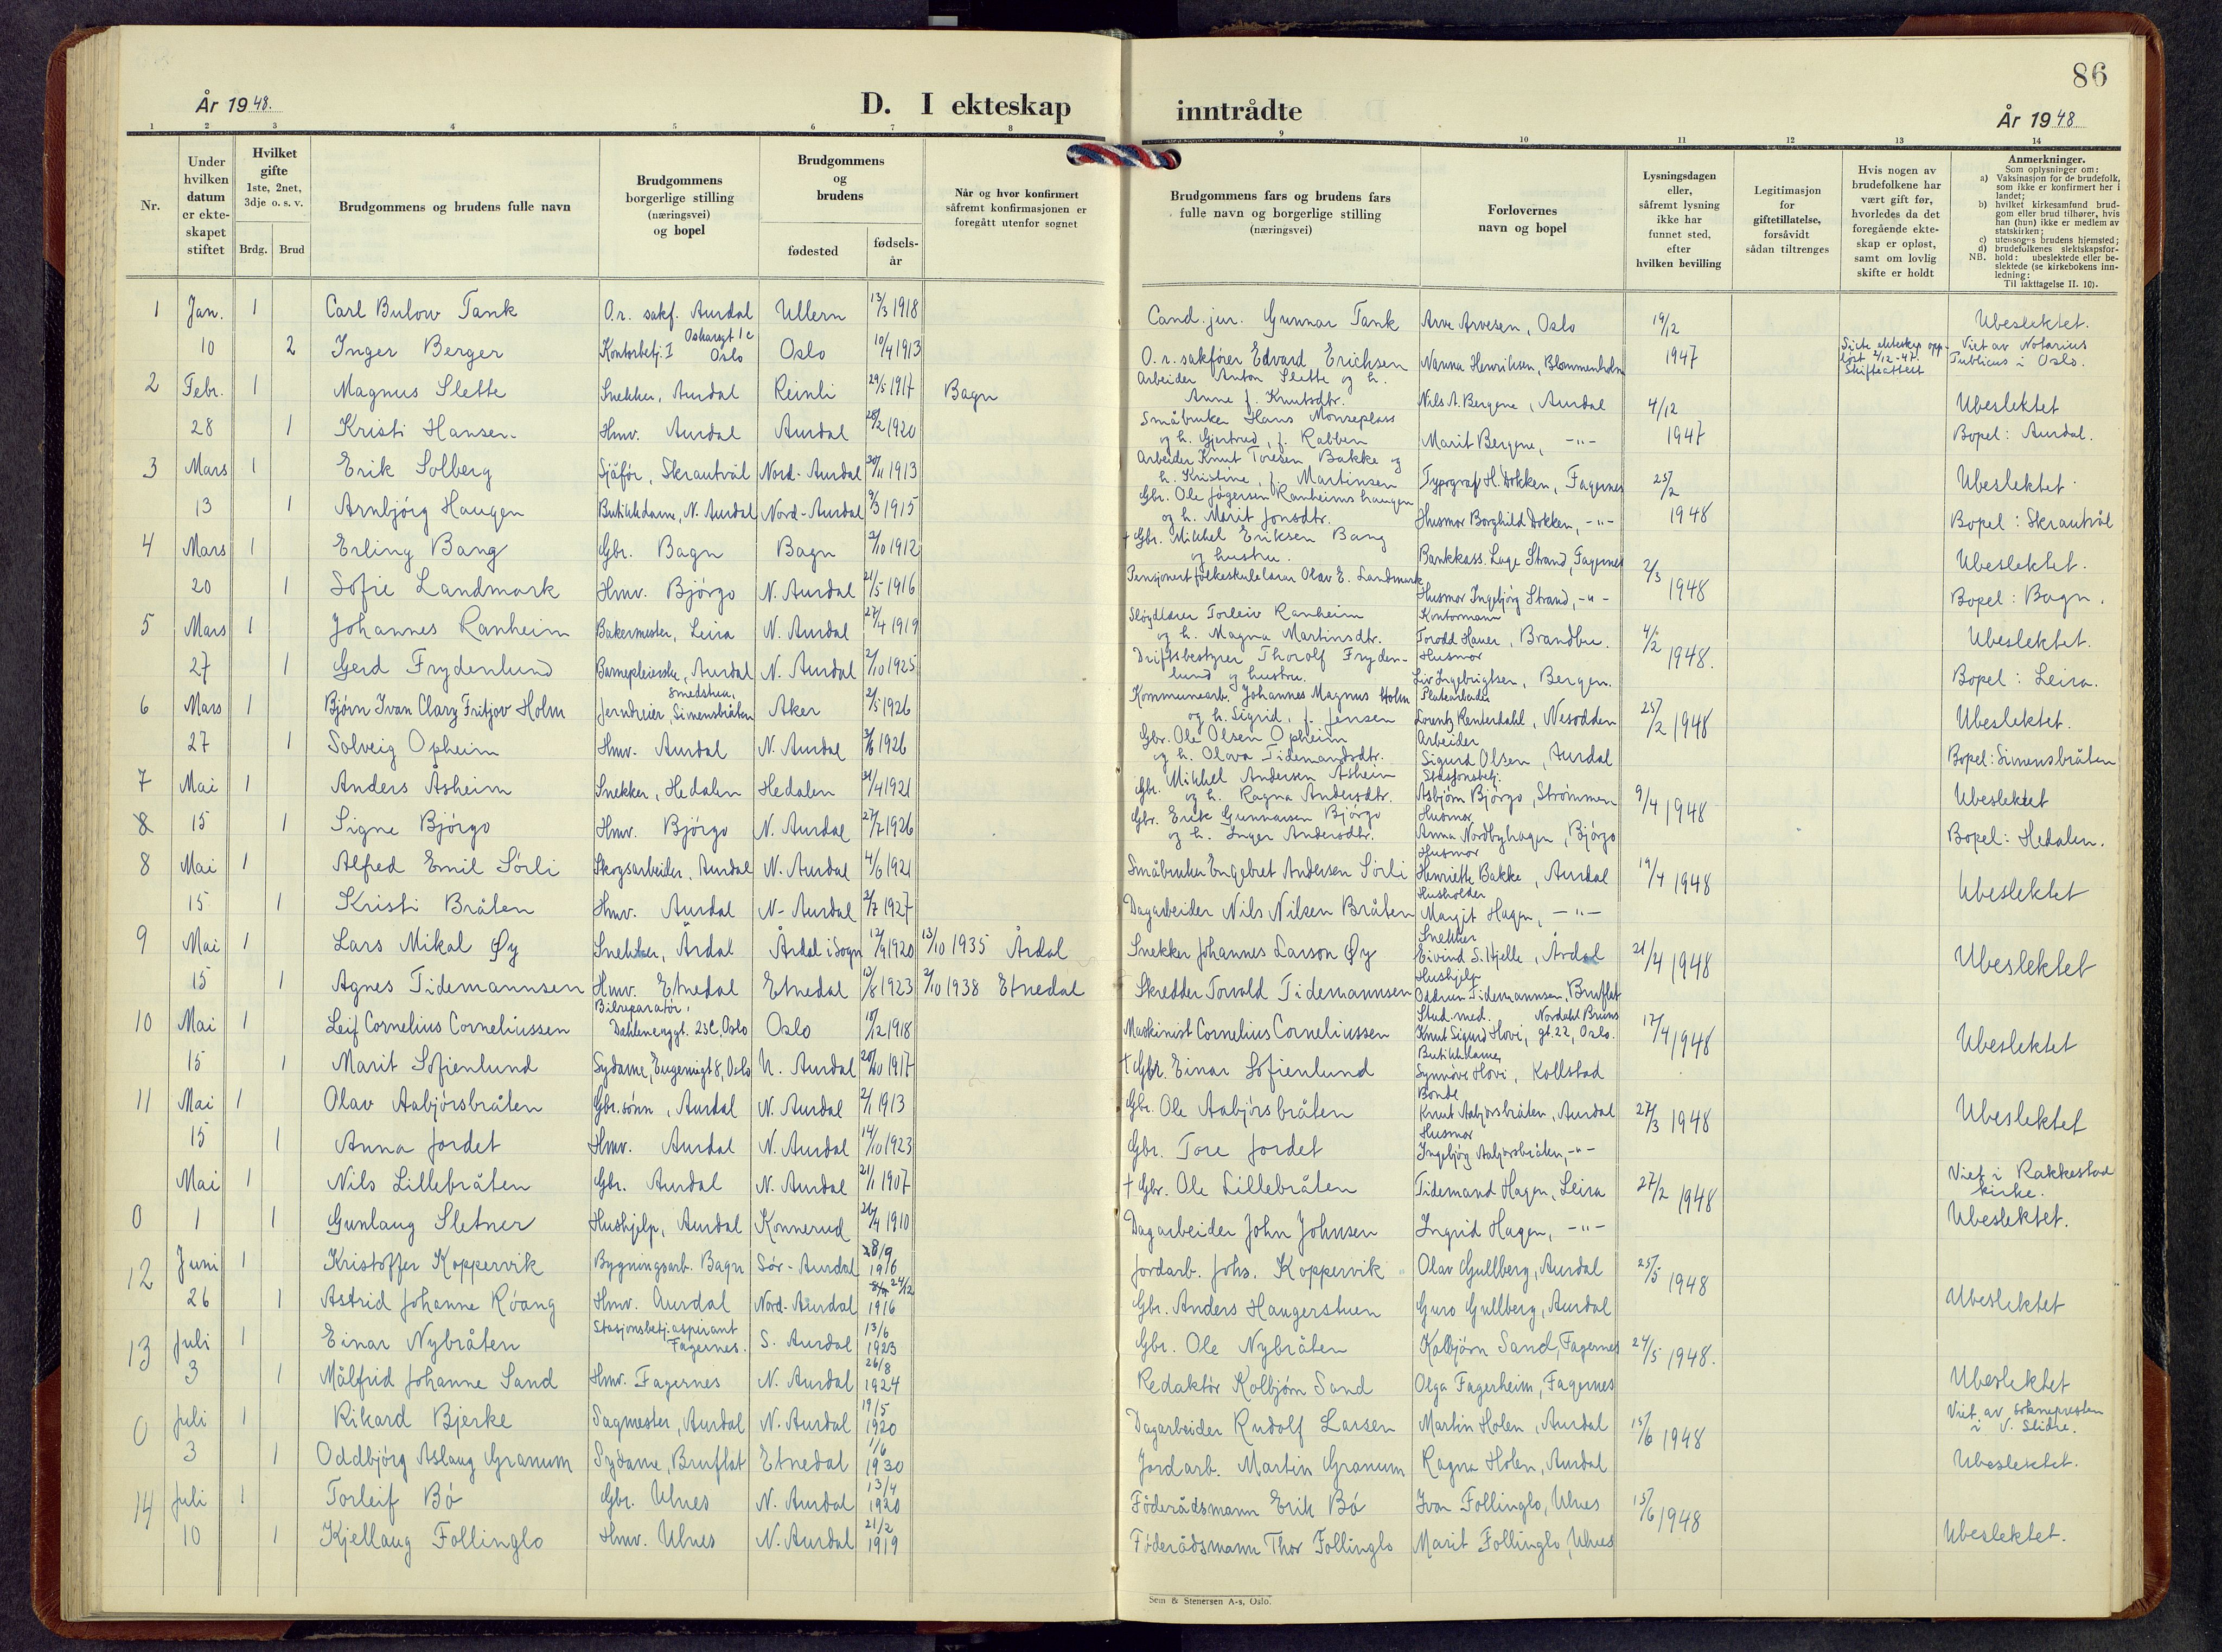 86
År 1948.
D. I ekteskap
inntrådte
År 1948
1 2 3 4 5 6 7 8 9 10 11 12 13 14
Nr.
Under hvilken datum er ekte-skapet stiftet
Hvilket gifte
1ste, 2net, 3dje o. s. v.
Brdg. Brud
Brudgommens og brudens fulle navn
Brudgommens borgerlige stilling (næringsvei) og bopel
Brudgommens og brudens
fødested
fødsels-år
Når og hvor konfirmert såfremt konfirmasjonen er foregått utenfor sognet
Brudgommens fars og brudens fars fulle navn og borgerlige stilling (næringsvei)
Forlovernes navn og bopel
Lysningsdagen eller, såfremt lysning ikke har funnet sted, efter hvilken bevilling
Legitimasjon for giftetillatelse, forsåvidt sådan tiltrenges
Hvis nogen av brudefolkene har vært gift før, hvorledes da det foregående ekte-skap er opløst, samt om lovlig skifte er holdt
Anmerkninger.
Som oplysninger om:
a) Vaksinasjon for de brudefolk, som ikke er konfirmert her i landet;
b) hvilket kirkesamfund brud-gom eller brud tilhører, hvis han (hun) ikke er medlem av statskirken;
c) utensogns brudens hjemsted;
d) brudefolkenes slektskapsfor-hold: ubeslektede eller be-slektede (se kirkebokens inn-ledning;
NB. Til iakttagelse II. 10).
1 Jan. 1 Carl Bulow Tank O.r. sakf. Aurdal Ullern 13/3 1918 Cand. jur. Gunnar Tank Arve Arvesen, Oslo 19/12 Ubeslektet.
10 2 Inger Berger Kontorbetj. I Oscarsgt 1c Oslo Oslo 10/4 1913 O.r. sakfører Edvard Erichsen Nanna Henriksen, Blommenholm 1947 Siste ekteskap opp-løst 2/12-47. Skifteattest Viet av Notarius Publicus i Oslo.
2 Febr. 1 Magnus Slette Snekker, Aurdal Reinli 29/5 1917 Bagn Arbeider Anton Slette og h. Anne f. Knutsdtr. Nils A. Bergene, Aurdal 4/12 Ubeslektet
28 1 Kristi Hansen Hmv. Aurdal Aurdal 28/2 1920 Småbruker Hans Monseplass og h. Gjertrud, f. Rabben Marit Bergene, -"- 1947 Bopel: Aurdal.
3 Mars 1 Erik Solberg Sjåfør, Skrautvål Nord-Aurdal 30/11 1913 Arbeider Knut Toresen Bakke og h. Kristine, f. Martinsen Typograf H. Dokken, Fagernes 25/2 Ubeslektet
13 1 Arnbjörg Haugen Butikkdame, N. Aurdal Nord-Aurdal 9/3 1915 Gbr. Ole Jögersen Ranheimshaugen og h. Marit Jonsdtr. Husmor Borghild Dokken, -"- 1948 Bopel: Skrautvål
4 Mars 1 Erling Bang Gbr. Bagn Bagn 2/10 1912 + Gbr. Mikkel Eriksen Bang og hustru. Bankkass. Lage Strand, Fagernes 2/3 Ubeslektet.
20 1 Sofie Landmark Hmv. Björgo N. Aurdal 21/5 1916 Pensjonert folkeskulelærar Olav E. Landmark Husmor Ingebjörg Strand, -"- 1948 Bopel: Bagn.
5 Mars 1 Johannes Ranheim Bakermester, Leira N. Aurdal 27/4 1919 Sløydlærer Torleiv Ranheim og h. Magna Martinsdtr. Kontormann Torodd Hauer, Brandbu. 4/2 Ubeslektet.
27 1 Gerd Frydenlund Barnepleierske, Aurdal N. Aurdal 2/10 1925 Driftsbestyrer Thorolf Fryden-lund og hustru. Husmor Liv Ingebrigtsen, Bergen. 1948. Bopel: Leira.
6 Mars 1 Bjørn Ivan Clary Fritjov Holm Jerndreier, Smedstua, Simensbråten Aker 2/5 1926 Kommunearb. Johannes Magnus Holm og h. Sigrid, f. Jensen Platearbeider Lorentz Renterdahl, Nesodden 25/2 1948 Ubeslektet.
27 1 Solveig Opheim Hmv. Aurdal N. Aurdal 1926 Gbr. Ole Olsen Opheim og h. Olava Tidemandsdtr. Arbeider Sigurd Olsen, Aurdal Bopel: Simensbråten
7 Mai 1 Anders Åsheim Snekker, Hedalen Hedalen 21/4 1921 Gbr. Mikkel Andersen Åsheim og h. Ragna Andersdtr. Stasjonsbetj. Asbjørn Björgo, Strømmen 9/4 1948 Ubeslektet
8 15 1 Signe Björgo Hmv. Björgo N. Aurdal 27/7 1926 Gbr. Erik Gunnarsen Björgo og h. Inger Andersdtr. Husmor Anna Nordbyhagen, Björgo Bopel: Hedalen.
8 Mai 1 Alfred Emil Sörli Skogsarbeider, Aurdal N. Aurdal 4/6 1921 Småbruker Engebret Andersen Sörli Husmor Henriette Bakke, Aurdal 19/4 1948 Ubeslektet
15 1 Kristi Bråten Hmv. Aurdal N-Aurdal 2/7 1927 Dagarbeider Nils Nilsen Bråten Husholder Margit Hagen, -"-
9 Mai 1 Lars Mikal Øy Snekker, Årdal Årdal i Sogn 12/9 1920 13/10 1935 Årdal Snekker Johannes Larson Øy Snekker Eivind S. Hjelle, Årdal 21/4 1948 Ubeslektet
15 1 Agnes Tidemannsen Hmv. Etnedal Etnedal 13/8 1923 2/10 1938 Etnedal Skredder Torvald Tidemannsen Hushjelp Oddrun Tidemannsen, Bruflat
10 Mai 1 Leif Cornelius Corneliussen Bilreparatør, Dahlenenggt. 23C, Oslo Oslo 18/12 1918 Maskinist Cornelius Corneliussen Stud. med. Knut Sigurd Hovi, Nordahl Bruns gt. 22, Oslo. 17/4 1948 Ubeslektet
15 1 Marit Sofienlund Sydame, Eugeniagt 8, Oslo N. Aurdal 20/10 1917 + Gbr. Einar Sofienlund Butikkdame Synnöve Hovi, Kollstad
11 Mai 1 Olav Aabjörsbråten Gbr.sønn, Aurdal N. Aurdal 2/1 1913 Gbr. Ole Aabjörsbråten Bonde Knut Aabjörsbråten, Aurdal 27/3 1948 Ubeslektet
15 1 Anna Jordet Hmv. Aurdal N. Aurdal 14/10 1923 Gbr. Tore Jordet Husmor Ingebjörg Aabjörsbråten, -"-
Mai 1 Nils Lillebråten Gbr. Aurdal N. Aurdal 21/1 1907 + Gbr. Ole Lillebråten Tidemand Hagen, Leira 27/2 1948 Viet i Rakkestad kirke.
0 1 1 Gunlaug Sletner Hushjelp, Aurdal Konnerud 26/4 1910 Dagarbeider John Johnsen Ingrid Hagen, -"- Ubeslektet.
12 Juni 1 Kristoffer Koppervik Bygningsarb. Bagn Sör-Aurdal 28/9 1916 Jordarb. Johs. Koppervik Olav Gullberg, Aurdal 25/5 1948
26 1 Astrid Johanne Röang Hmv. Aurdal Nord-Aurdal 24/12 1916 Gbr. Anders Haugerstuen Guro Gullberg, Aurdal Ubeslektet
13 Juli 1 Einar Nybråten Stasjonsbetj.aspirant Fagernes. S. Aurdal 13/6 1923 Gbr. Ole Nybråten Kolbjörn Sand, Fagernes 24/5 1948.
3 1 Målfrid Johanne Sand Hmv. Fagernes N. Aurdal 26/8 1924 Redaktör Kolbjörn Sand Olga Fagerheim, Fagernes Ubeslektet
0 Juli 1 Rikard Bjerke Sagmester, Aurdal N. Aurdal 19/5 1920 Dagarbeider Rudolf Larsen Martin Holen, Aurdal 15/6 1948 Viet av soknepresten i V. Slidre.
3 1 Oddbjörg Aslaug Granum Sydame, Bruflat Etnedal 1/6 1930 Jordarb. Martin Granum Ragna Holen, Aurdal Ubeslektet.
14 Juli 1 Torleif Bö Gbr. Ulnes N. Aurdal 13/4 1920 Föderådsmann Erik Bö Ivar Follinglo, Ulnes 15/6 1948
10 1 Kjellaug Follinglo Hmv. Ulnes N. Aurdal 21/2 1919 Föderådsmann Thor Follinglo Marit Follinglo, Ulnes Ubeslektet.
Sem & Stenersen A-s, Oslo.